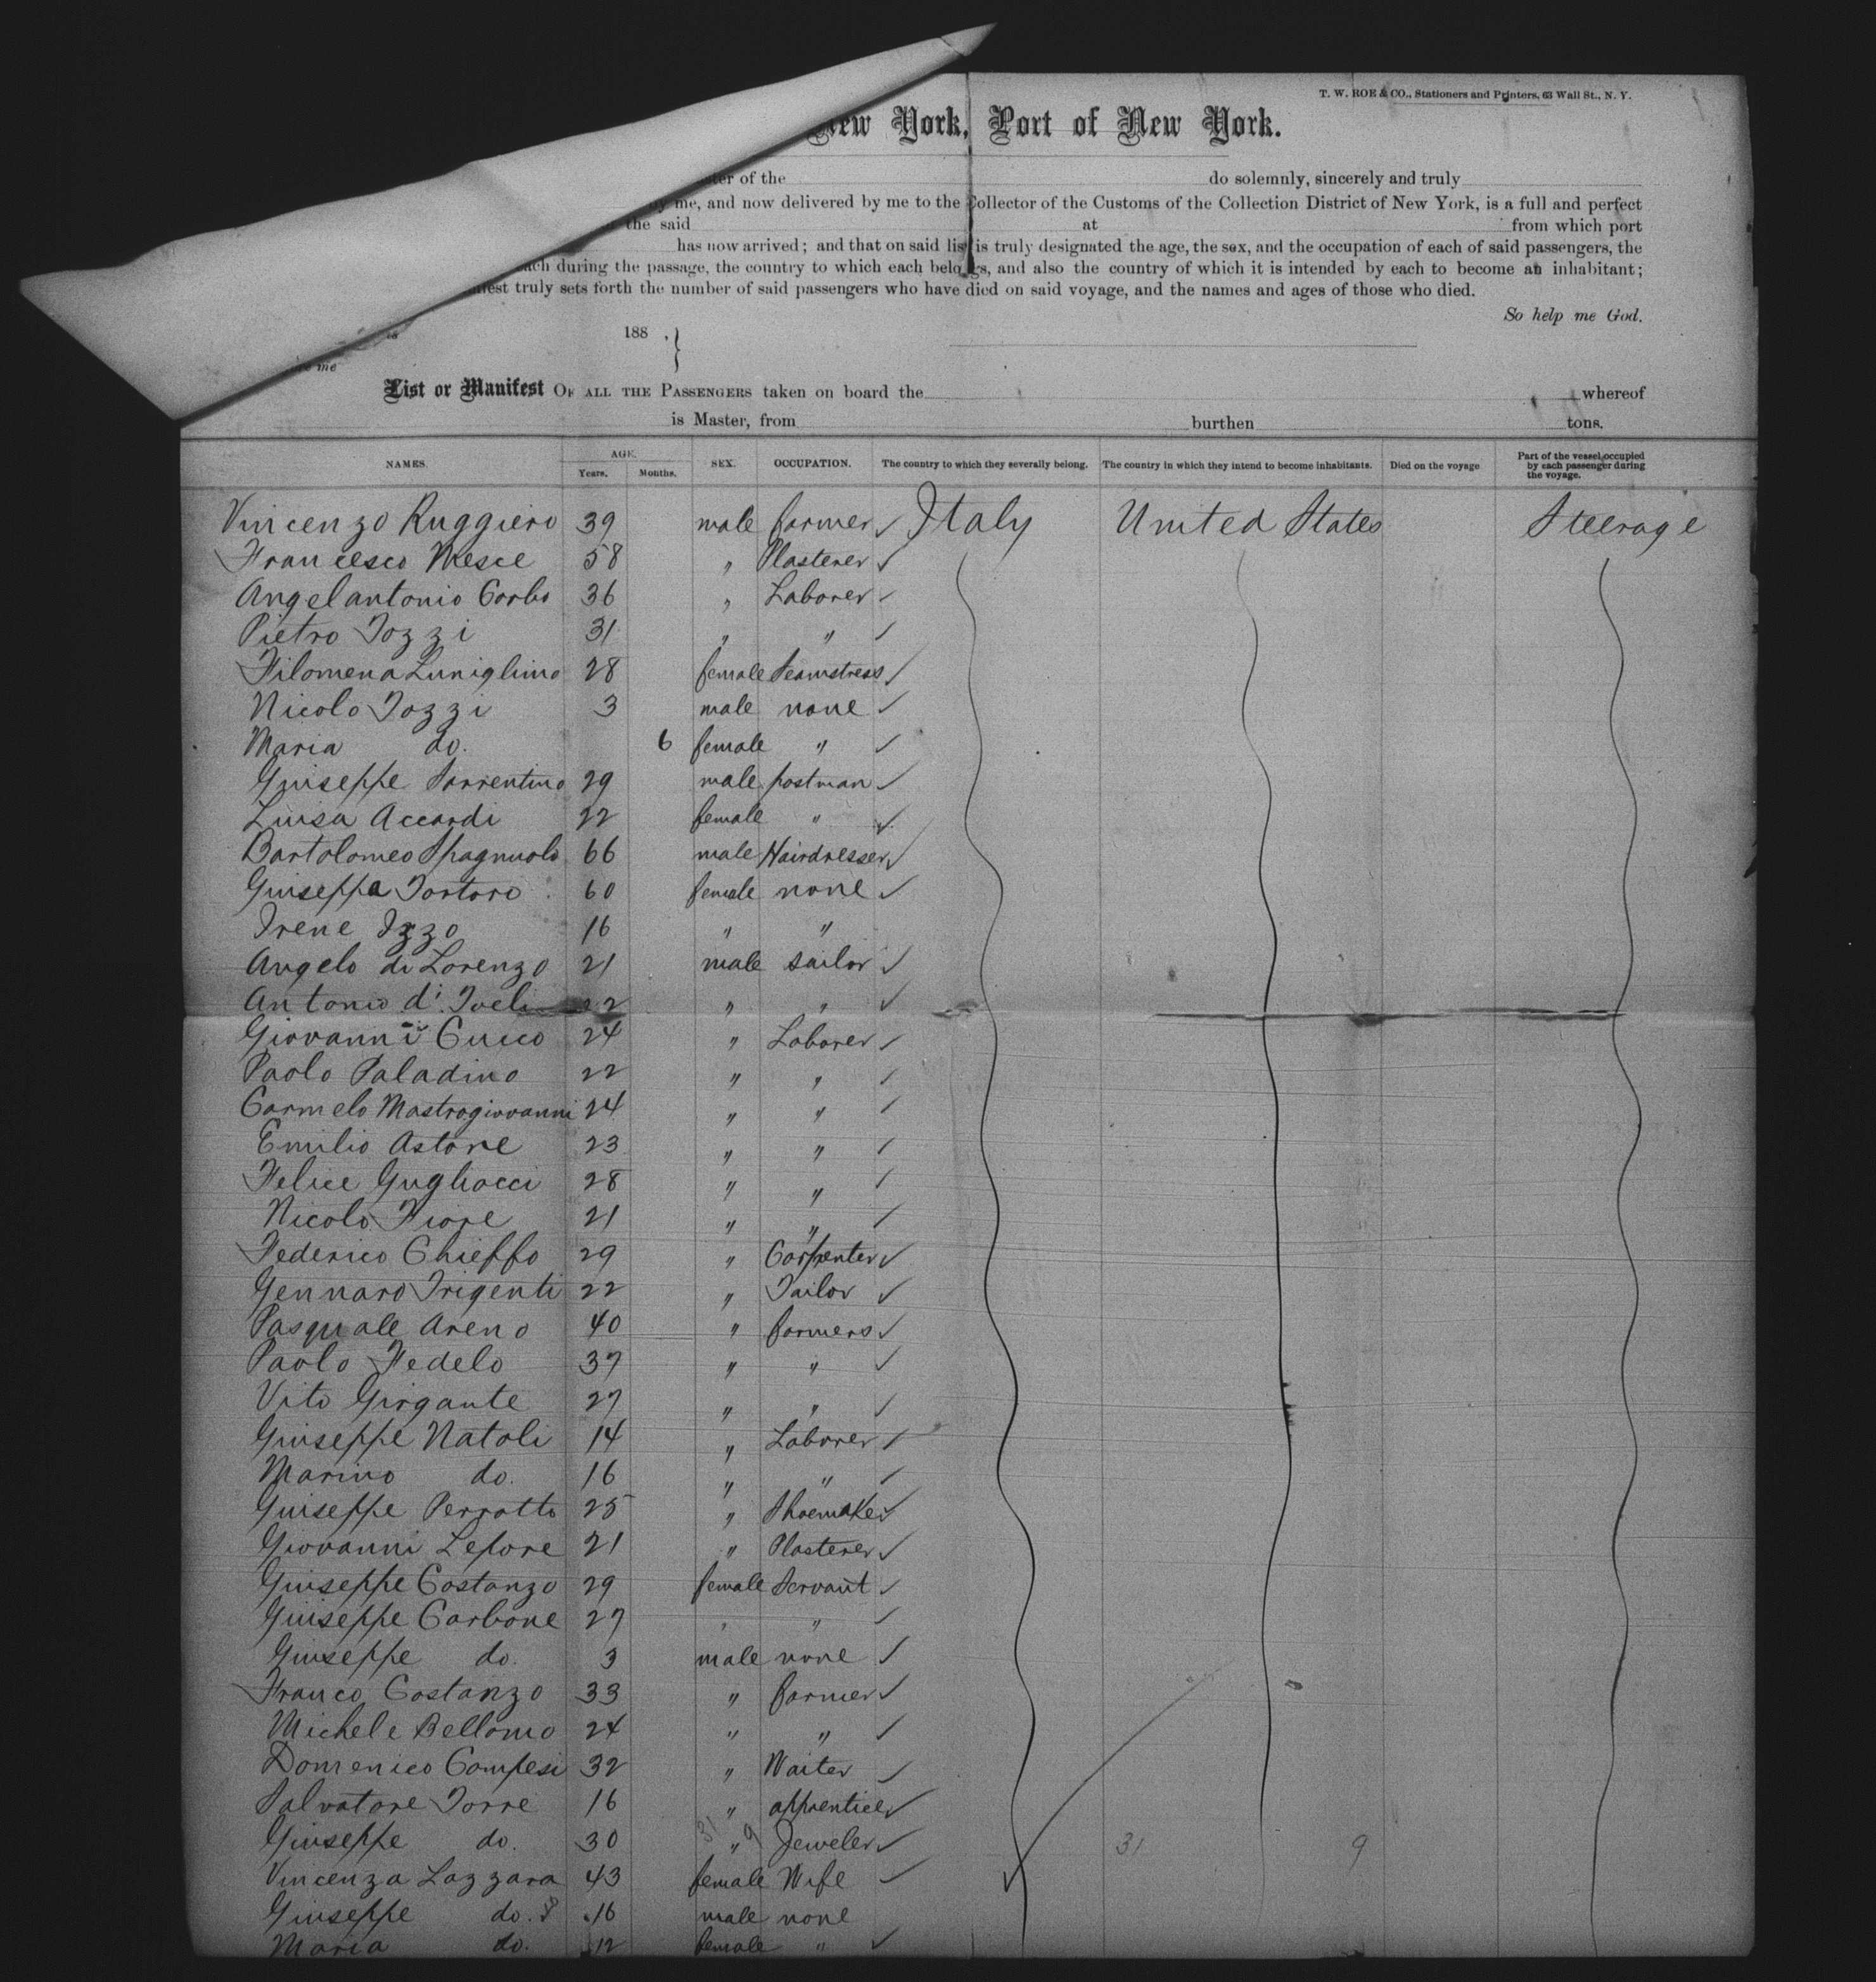 T. W. ROE & CO., Stationers and Printers, 63 Wall St., N. Y.
New York, Port of New York.
ster of the do solemnly, sincerely and truly
by me, and now delivered by me to the Collector of the Customs of the Collection District of New York, is a full and perfect
the said at from which port
has now arrived; and that on said list is truly designated the age, the sex, and the occupation of each of said passengers, the
each during the passage, the country to which each belongs, and also the country of which it is intended by each to become an inhabitant;
fest truly sets forth the number of said passengers who have died on said voyage, and the names and ages of those who died.
So help me God.
188 .
me
List or Manifest OF ALL THE PASSENGERS taken on board the whereof
is Master, from burthen tons.
NAMES. AGE. Years. Months. SEX. OCCUPATION. The country to which they severally belong. The country in which they intend to become inhabitants. Died on the voyage. Part of the vessel occupied by each passenger during the voyage.
Vincenzo Ruggiero 39 male farmer Italy United States Steerage
Francesco Mesce 58 " Plasterer
Angelantonio Corbo 36 " Laborer
Pietro Tozzi 31 " "
Filomena Luniglimo 28 female Seamstress
Nicolo Tozzi 3 male none
Maria do. 6 female "
Guiseppe Sorrentino 29 male postman
Luisa Accardi 22 female "
Bartolomeo Spagnuolo 66 male Hairdresser
Guiseppa Tortoro 60 female none
Irene Izzo 16 " "
Angelo di Lorenzo 21 male sailor
Antonio d' 22 " "
Giovanni Cucco 24 " Laborer
Paolo Paladino 22 " "
Carmelo Mastrogiovanni 24 " "
Emilio Astore 23 " "
Felice Gugliocci 28 " "
Nicolo Fiore 21 " "
Federico Chieffo 29 " Carpenter
Gennaro Trigenti 22 " Tailor
Pasquale Areno 40 " farmers
Paolo Fedelo 37 " "
Vito Girgante 27 " "
Guiseppe Natoli 14 " Laborer
Marino do. 16 " "
Guiseppe Perrotto 25 " Shoemaker
Giovanni Lepore 21 " Plasterer
Guiseppe Costanzo 29 female Servant
Guiseppe Carbone 27 " "
Guiseppe do. 3 male none
Franco Costanzo 33 " farmer
Michele Bellomo 24 " "
Domenico Compesi 32 " Waiter
Salvatore Torre 16 " apprentice
Giuseppe do. 30 31 " 9 Jeweler 31 9
Vincenza Lazzara 43 female Wife
Giuseppe do. 16 male none
Maria do. 12 female "